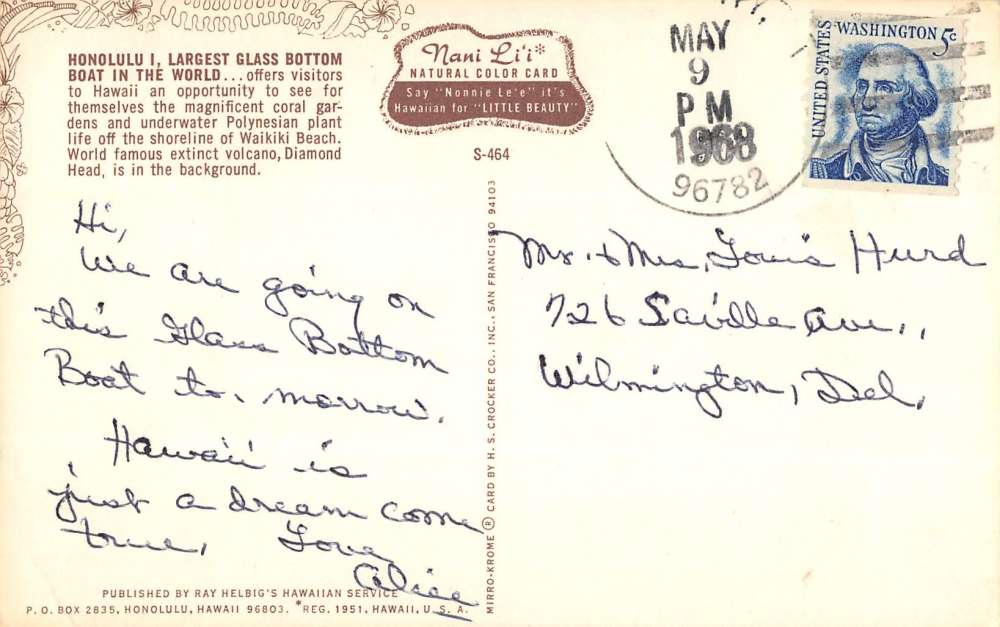 HONOLULU I, LARGEST GLASS BOTTOM
BOAT IN THE WORLD...offers visitors
to Hawaii an opportunity to see for
themselves the magnificent coral gar-
dens and underwater Polynesian plant
life off the shoreline of Waikiki Beach.
World famous extinct volcano, Diamond
Head, is in the background.
Nani Li'i*
NATURAL COLOR CARD
Say "Nonnie Le'e" it's
Hawaiian for "LITTLE BEAUTY"
S-464
MAY
9
PM
1968
96782
UNITED STATES
WASHINGTON 5c
Hi,
We are going on
this Glass Bottom
Boat to-morrow.
Hawaii is
just a dream come
true, Love
Alice
Mr. & Mrs. Louis Hurd
726 Saville Ave.,
Wilmington, Del.
MIRRO-KROME ® CARD BY H. S. CROCKER CO., INC., SAN FRANCISCO 94103
PUBLISHED BY RAY HELBIG'S HAWAIIAN SERVICE
P.O. BOX 2835, HONOLULU, HAWAII 96803. *REG. 1951, HAWAII, U.S.A.